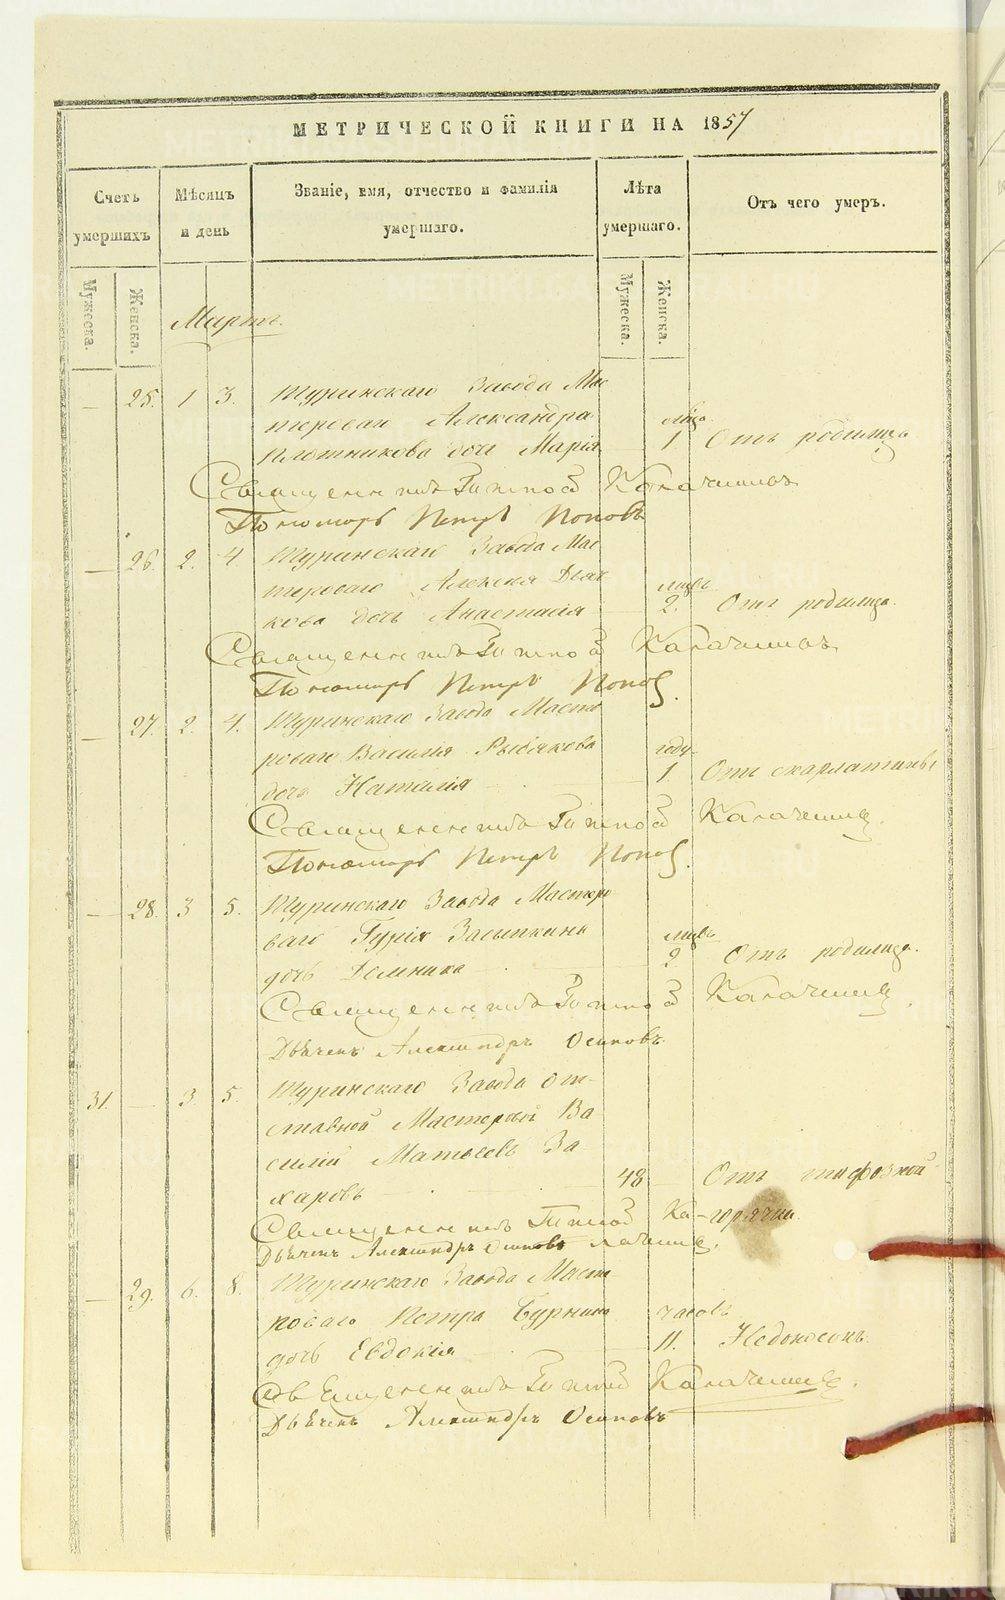 МЕТРИЧЕСКОЙ КНИГИ НА 1857
Счетъ умершихъ
Мѣсяцъ и день
Званіе, имя, отчество и фамилія умершаго.
Лѣта умершаго.
Отъ чего умеръ.
Мужеска. Женска.
Мужеска. Женска.
Мартъ.
— 25. 1 3. Туринскаго Завода Мас
терован Александра
Плотникова дочь Марія 1 Отъ родимца
Священникъ Калачниковъ
Пономарь Петръ Поповъ
— 26. 2. 4 Туринскаго Завода Мас
тероваго Алексея Дьяч
кова дочь Анастасія 2. Отъ родимца.
Священникъ Калачниковъ
Пономарь Петръ Поповъ.
— 27. 2. 4. Туринскаго Завода Масте
роваго Василія Рыбякова году
дочь Наталія 1. Отъ скарлатины
Священникъ
Пономарь Петръ Поповъ.
— 28. 3 5. Туринскаго Завода Мастеро
ваго Гурія Засыпкина
дочь Домника 2 Отъ родимца.
Священникъ
Дьячекъ Александръ Осиповъ.
31. — 3 5. Туринскаго Завода от-
ставной Мастеровой Ва
силій Матвеевъ За
харовъ 48 — Отъ тифозной
горячки
Священникъ
Дьячекъ Александръ Осиповъ
— 29. 6. 8. Туринскаго Завода Масте
роваго Петра Бурнина часовъ
дочь Евдокія 11. Недоносокъ
Священникъ
Дьячекъ Александръ Осиповъ
METRIKI.GASO-URAL.RU